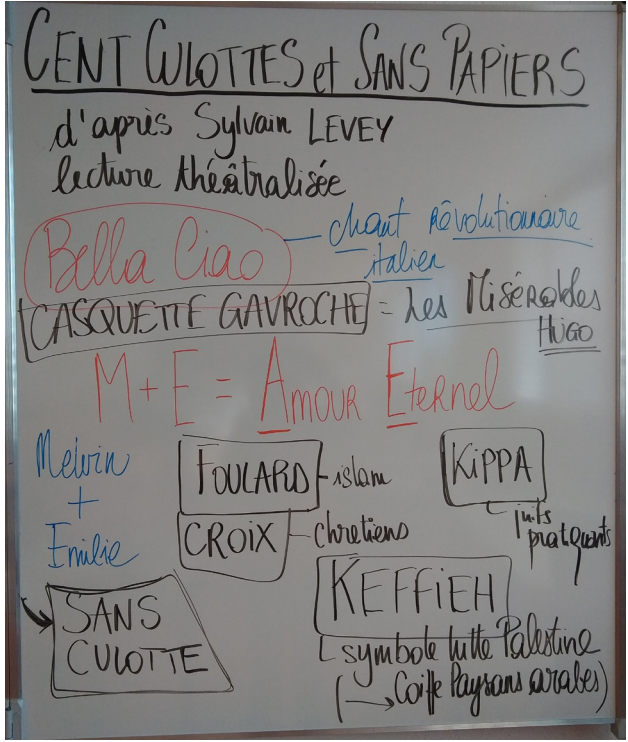 CENT CULOTTES et SANS PAPIERS
d'après Sylvain LEVEY
lecture théâtralisée
Bella Ciao — chant Révolutionnaire
italien
CASQUETTE GAVROCHE = Les Misérables
HUGO
M + E = Amour Eternel
Melvin
+
Emilie
FOULARD - islam
CROIX - chretiens
KiPPA
juifs
pratiquants
SANS
CULOTTE
KEFFiEH
symbole lutte Palestine
(→ Coiffe Paysans arabes)